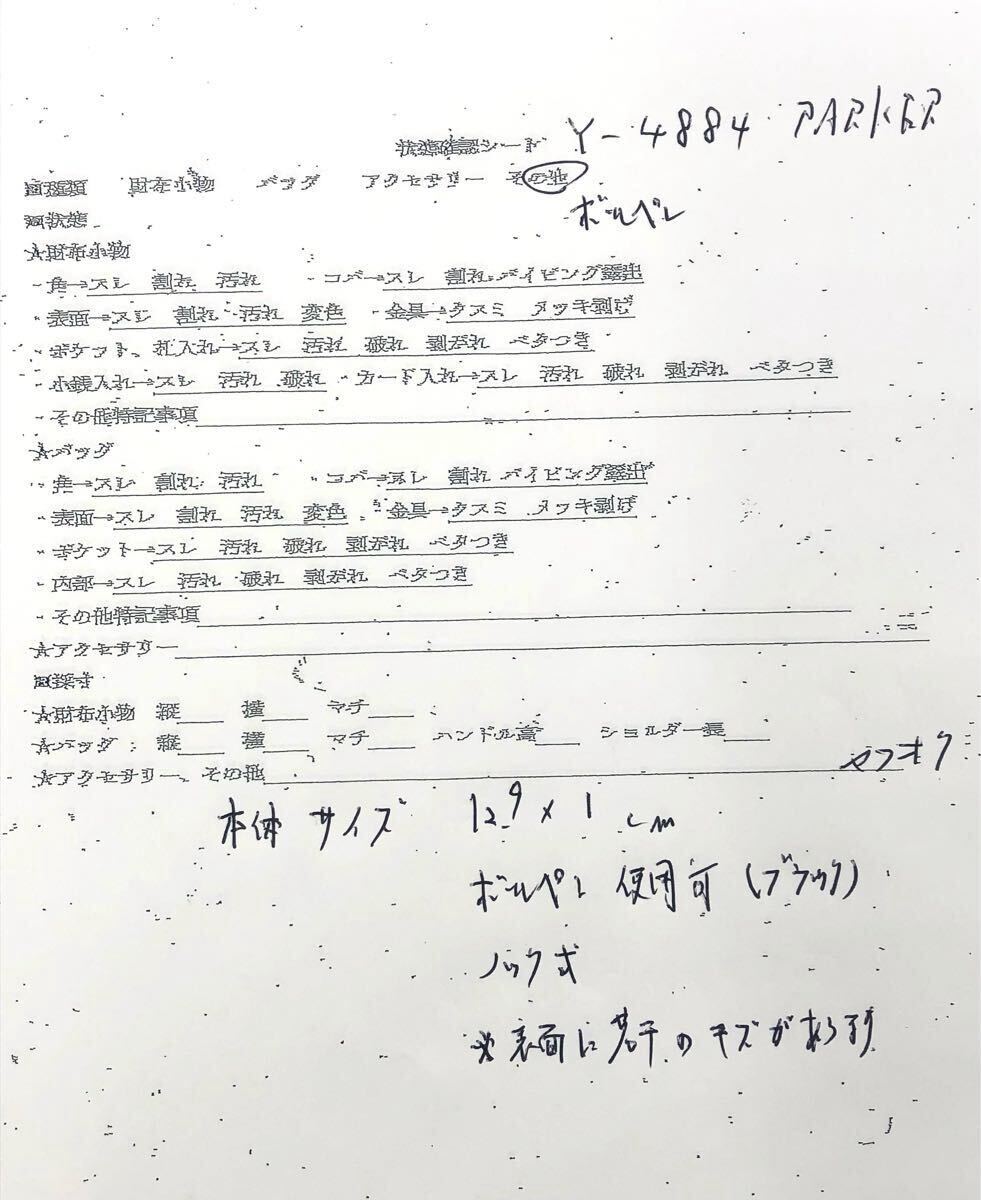 状態確認シート Y-4884 PARKER
▣種類 財布小物 バッグ アクセサリー その他
ボールペン
▣状態
☆財布小物
・角→スレ 割れ 汚れ ・コバ→スレ 割れ パイピング露出
・表面→スレ 割れ 汚れ 変色 ・金具→クスミ メッキ剥げ
・ポケット、札入れ→スレ 汚れ 破れ 剥がれ ベタつき
・小銭入れ→スレ 汚れ 破れ ・カード入れ→スレ 汚れ 破れ 剥がれ ベタつき
・その他特記事項
☆バッグ
・角→スレ 割れ 汚れ ・コバ→スレ 割れ パイピング露出
・表面→スレ 割れ 汚れ 変色 ・金具→クスミ メッキ剥げ
・ポケット→スレ 汚れ 破れ 剥がれ ベタつき
・内部→スレ 汚れ 破れ 剥がれ ベタつき
・その他特記事項
☆アクセサリー
▣採寸
☆財布小物 縦 横 マチ
☆バッグ 縦 横 マチ ハンドル高 ショルダー長
☆アクセサリー、その他 ヤフオク
本体サイズ 12.9 × 1 cm
ボールペン 使用可 (ブラック)
ノック式
※表面に若干のキズがあります